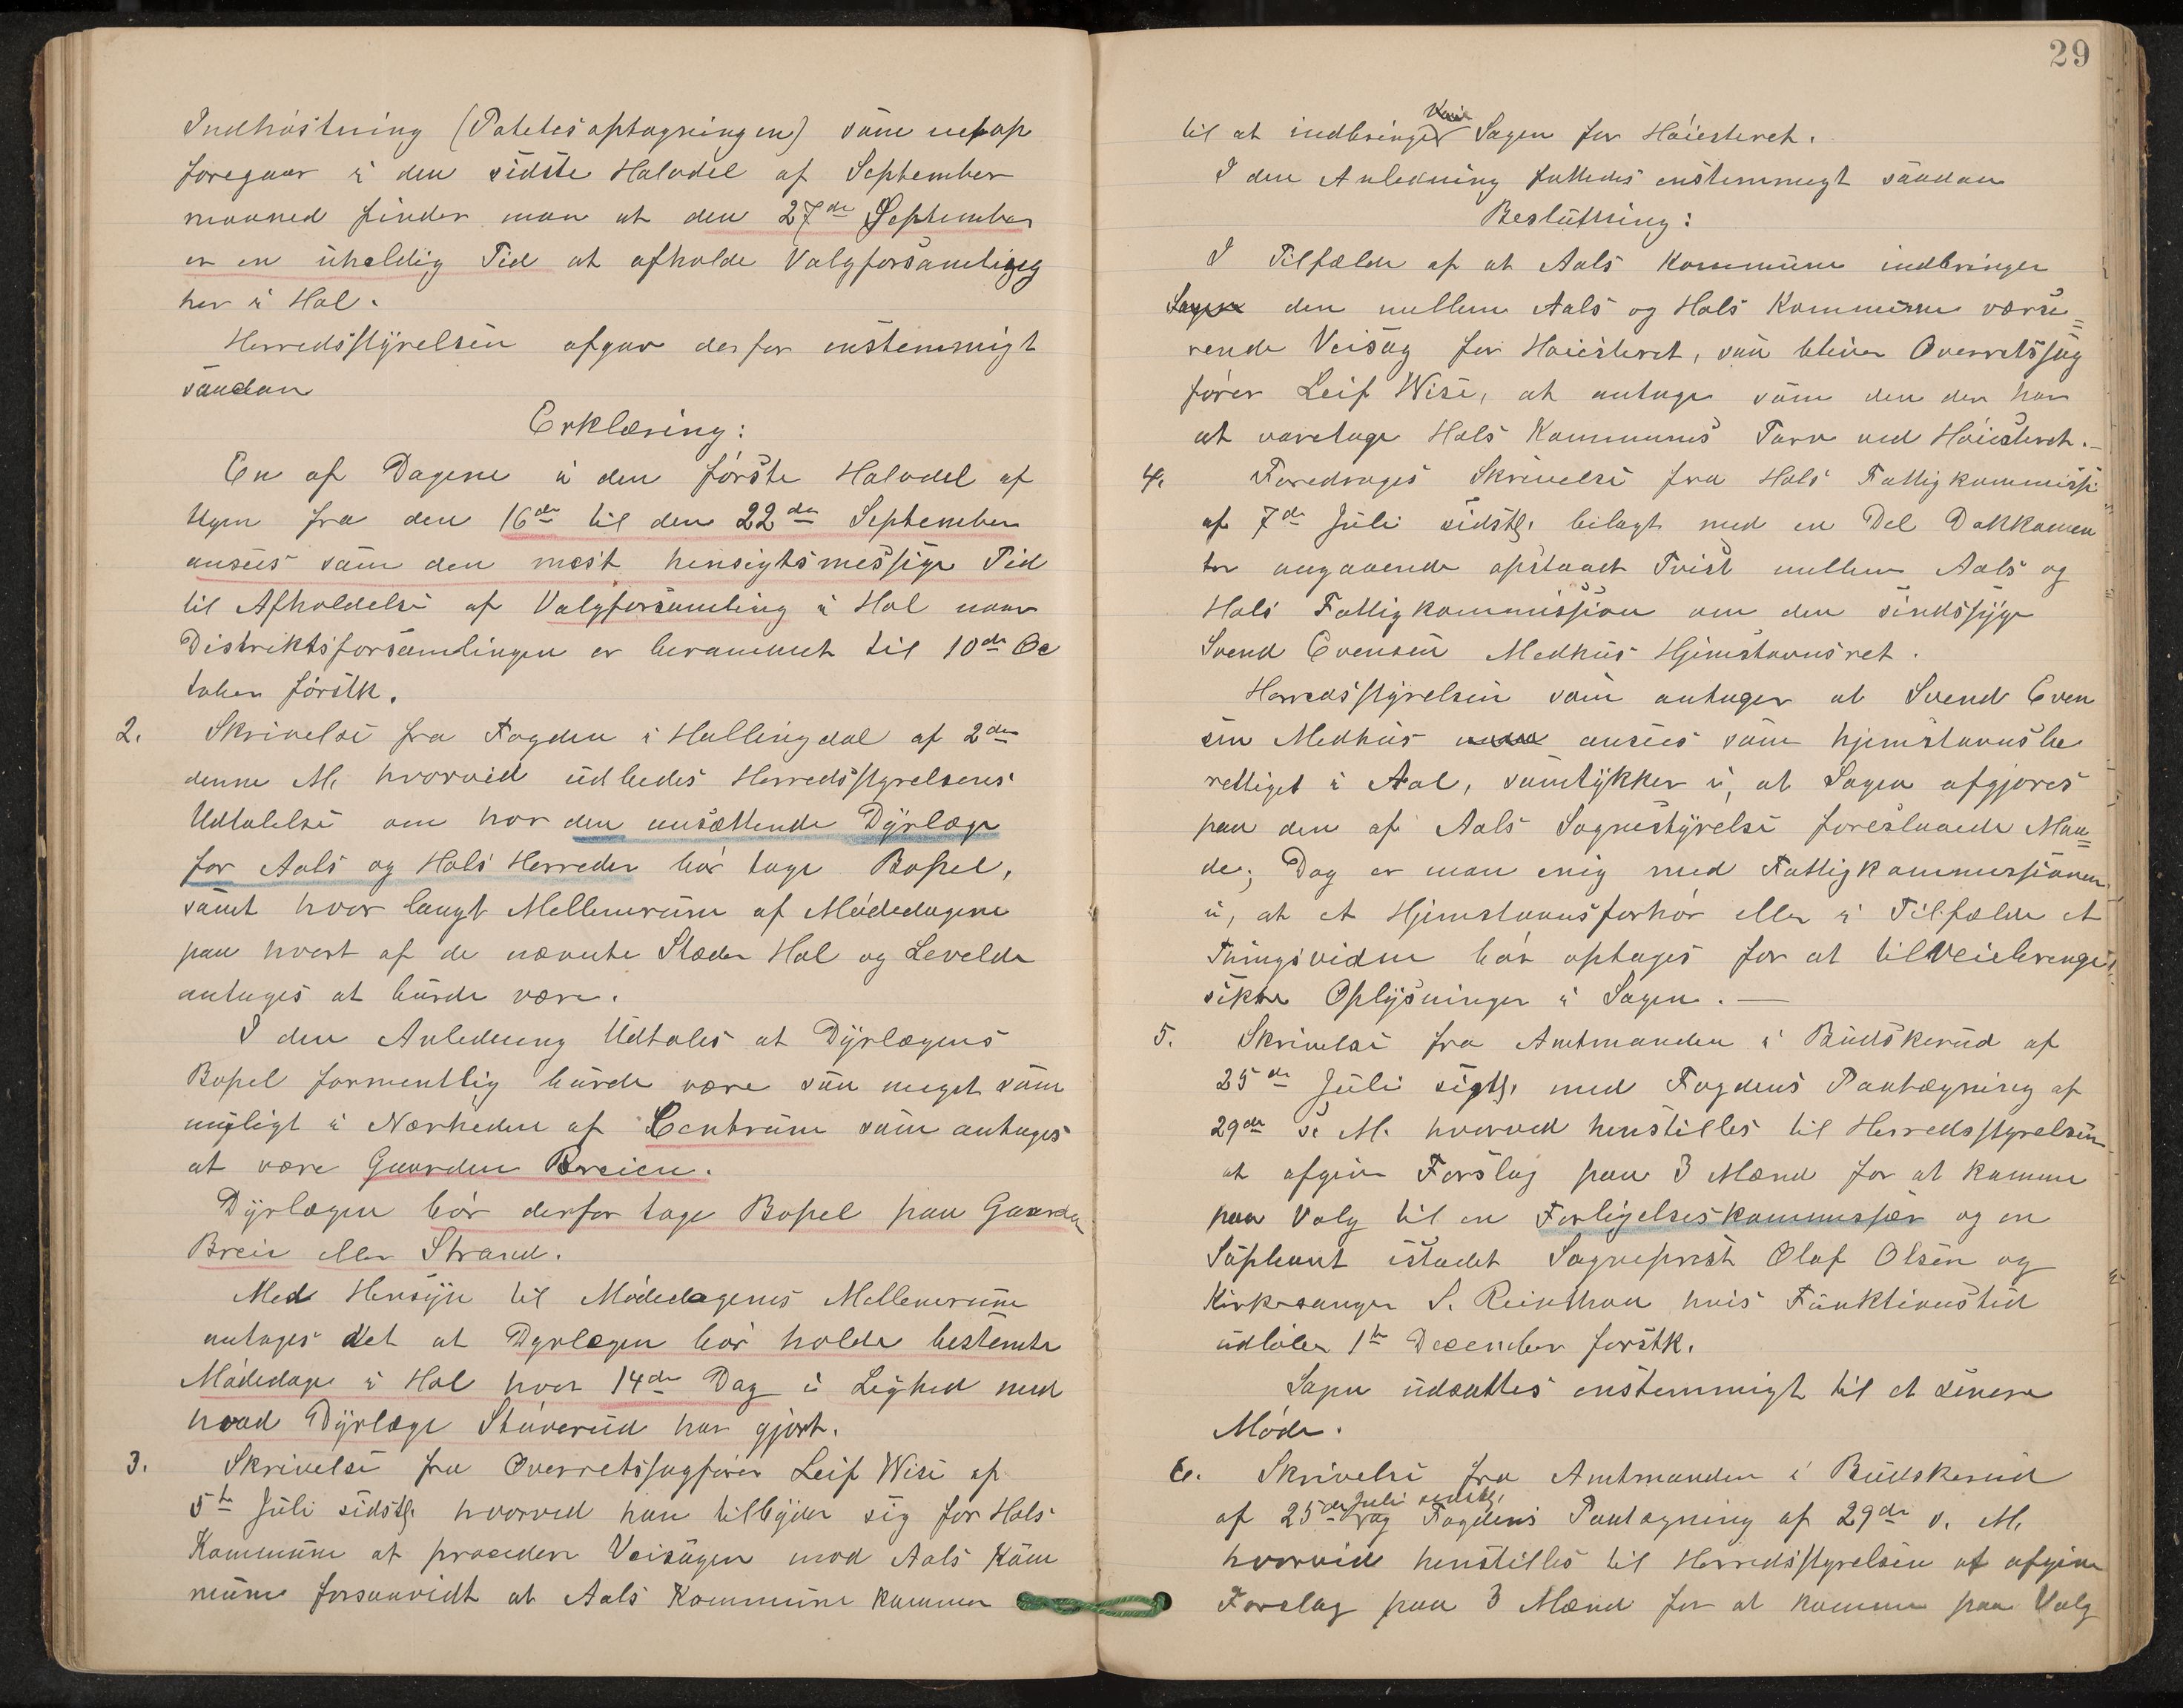 Indhøstning (Potetesoptagningen) som netop
foregaar i den sidste Halvdel af September
maaned finder man at den 27de September
er en uheldig Tid at afholde Valgforsamling
her i Hol.
Herredsstyrelsen afgav derfor enstemmigt
saadan
Erklæring:
En af Dagene i den første Halvdel af
Ugen fra den 16de til den 22de September
ansees som den mest hensigtsmessige Tid
til Afholdelse af Valgforsamling i Hol naar
Distriktsforsamlingen er berammet til 10de Oc
tober førstk.
2. Skrivelse fra Fogden i Hallingdal af 2den
denne M. hvorved udbedes Herredsstyrelsens
Udtalelse om hvor den ansættende Dyrlæge
for Aals og Hols Herreder bør tage Bopel,
samt hvor langt Mellemrum af Mødedagene
paa hvert af de nævnte Stæder Hol og Levelde
antages at burde være.
I den Anledning Udtales at Dyrlægens
Bopel formentlig burde være saa meget som
muligt i Nærheden af Centrum som antages
at være Gaarden Breien.
Dyrlægen bør derfor tage Bopel paa Gaarden
Breie eller Strand.
Med Hensyn til Mødedagenes Mellemrum
antages det at Dyrlægen bør holde bestemte
Mødedage i Hol hver 14de Dag i Lighed med
hvad Dyrlæge Støverud har gjort.
3. Skrivelse fra Overretssagfører Leif Wise af
5te Juli sidstl. hvorved han tilbyder sig for Hols
Kommune at procedere Veisagen mod Aals Kom
mune forsaavidt at Aals Kommune kommer
29
til at indbringe Sagen for Høiesteret.
I den Anledning fattedes enstemmigt saadan
Beslutning:
I Tilfælde af at Aals Kommune indbringer
Sagen den mellem Aals og Hols Kommune værse=
rende Veisag for Høiesteret, saa bliver Overretssag
fører Leif Wise, at antage som den der har
at varetage Hols Kommunes Tarv ved Høiesteret.-
4. Foredroges Skrivelse fra Hols Fattigkommissi
af 7de Juli sidstl. bilagt med en Del Dokkumen
ter angaaende opstaaet Tvist mellem Aals og
Hols Fattigkommission om den sindssyge
Svend Evensen Medhus Hjemstavnsret.
Herredsstyrelsen som antager at Svend Even
sen Medhus ansees som hjemstavnsbe
rettiget i Aal, samtykker i, at Sagen afgjøres
paa den af Aals Sognestyrelse foreslaaede Maa=
de; Dog er man enig med Fattigkommissionen
i, at et Hjemstavnsforhør eller i Tilfælde et
Thingsvidne bør optages for at tilveiebringe
sikre Oplysninger i Sagen. —
5. Skrivelse fra Amtmanden i Budskerud af
25de Juli sigtl. med Fogdens Paategning af
29de s. M. hvorved henstilles til Herredsstyrelsen
at afgive Forslag paa 3 Mænd for at komme
paa Valg til en Forligelseskommissær og en
Suppleant istadet Sogneprest Olaf Olsen og
Kirkesanger S. Reinthon hvis Funktionstid
udløber 1te December førstk.
Sagen udsattes enstemmigt til et senere
Møde.
6. Skrivelse fra Amtmanden i Budskerud
af 25de Juli sidstl. og Fogdens Paategning af 29de s. M.
hvorved henstilles til Herredsstyrelsen at afgive
Forslag paa 3 Mænd for at komme paa Valg